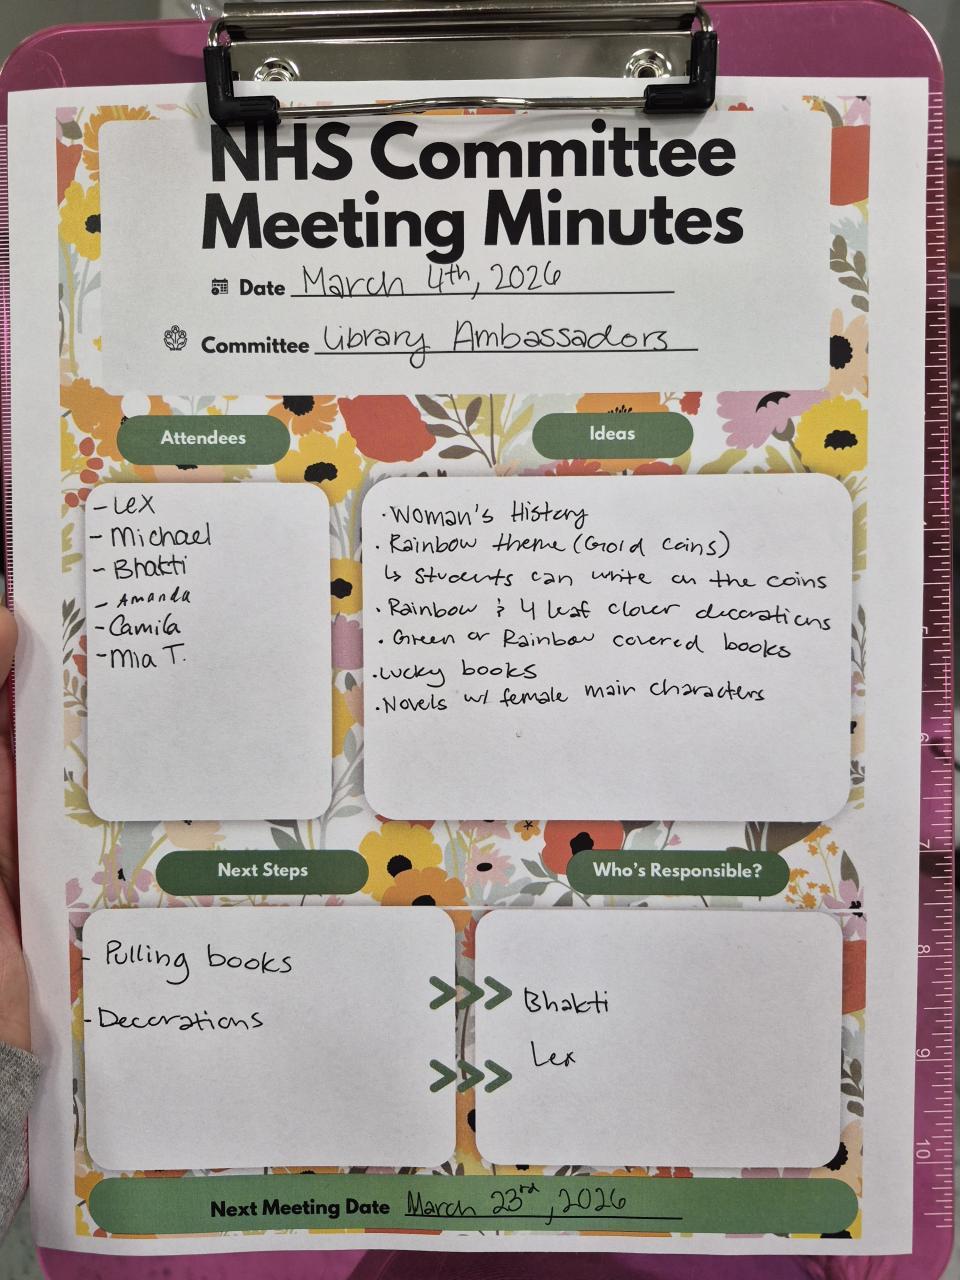 NHS Committee
Meeting Minutes
Date March 4th, 2026
Committee Library Ambassadors
Attendees
- Lex
- Michael
- Bhakti
- Amanda
- Camila
- Mia T.
Ideas
· Woman's History
· Rainbow theme (Gold coins)
↳ Students can write on the coins
· Rainbow & 4 leaf clover decorations
· Green or Rainbow covered books
· Lucky books
· Novels w/ female main characters
Next Steps
- Pulling books
- Decorations
Who's Responsible?
Bhakti
Lex
Next Meeting Date March 23rd, 2026
6
7
8
9
10